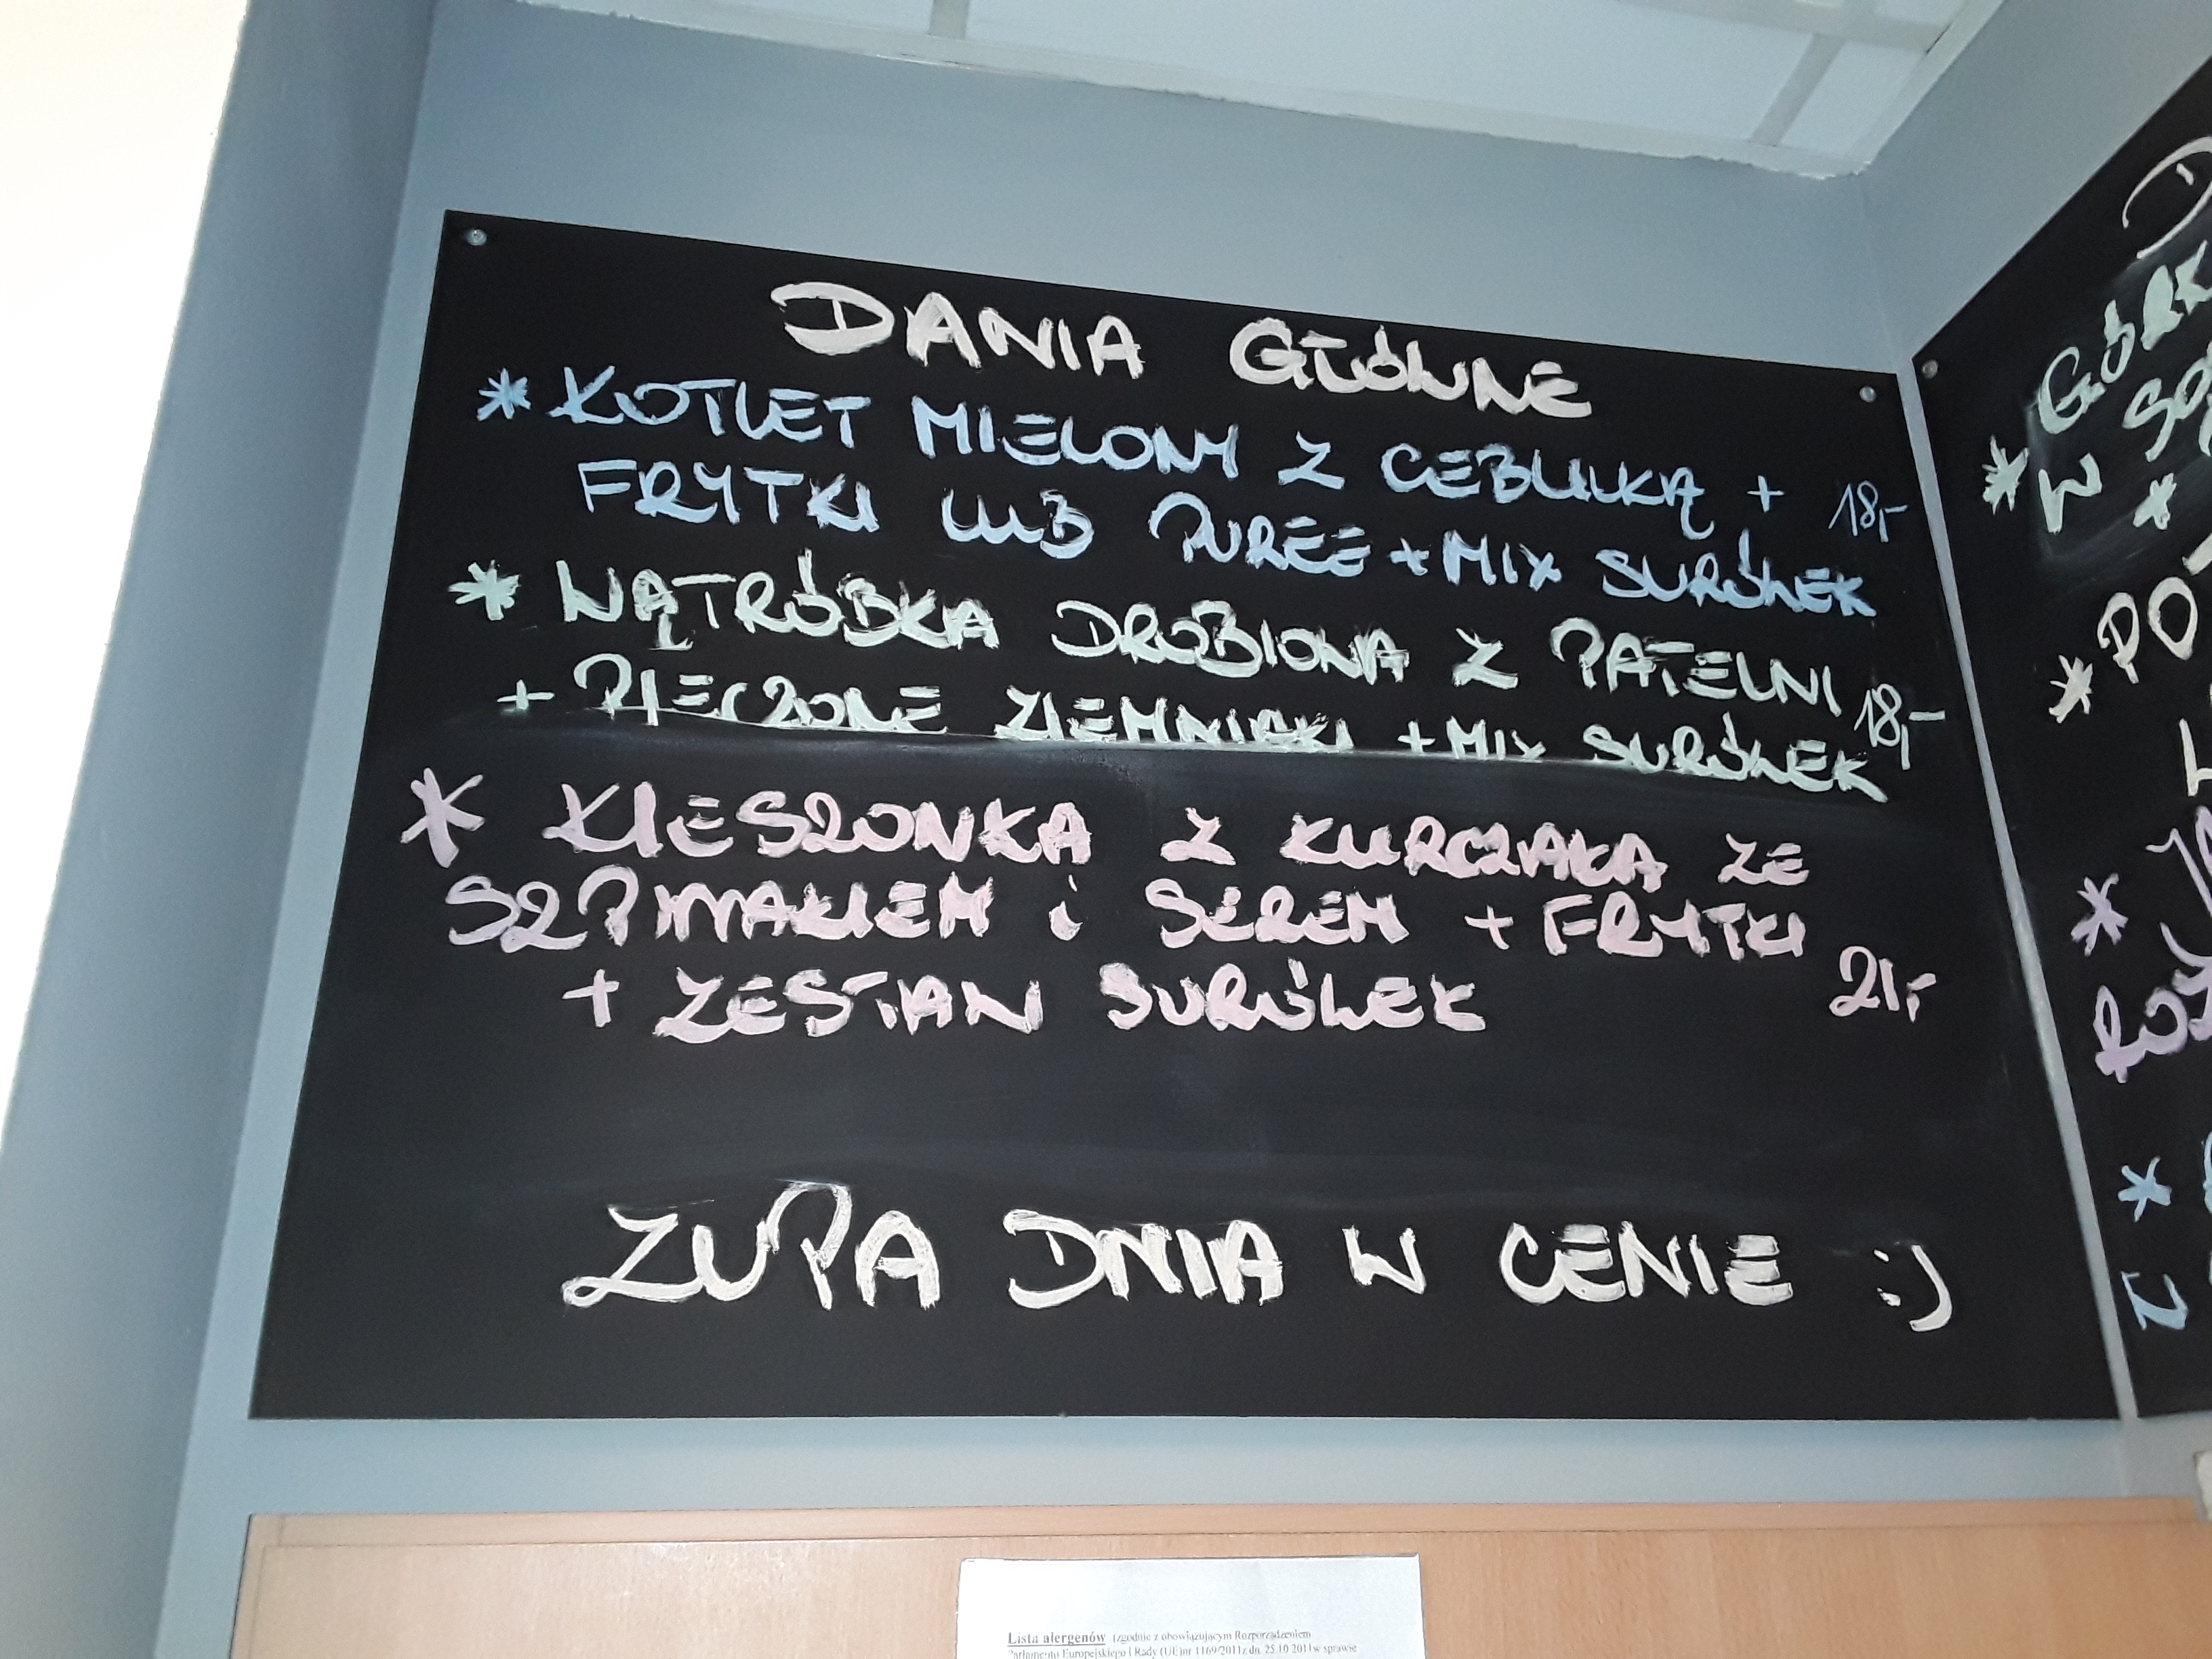 DANIA GŁÓWNE
* KOTLET MIELONY Z CEBULKĄ +
FRYTKI LUB PURÉE + MIX SURÓWEK 18,-
* WĄTRÓBKA DROBIOWA Z PATELNI
+ PIECZONE ZIEMNIAKI + MIX SURÓWEK 18,-
* KIESZONKA Z KURCZAKA ZE
SZPINAKIEM i SEREM + FRYTKI
+ ZESTAW SURÓWEK 21,-
ZUPA DNIA W CENIE :)
D
GÓRK
* W SO
*
* PO
*
*
Z
Lista alergenów (zgodnie z obowiązującym Rozporządzeniem
Parlamentu Europejskiego i Rady (UE)nr 1169/2011z dn. 25.10 2011w sprawie